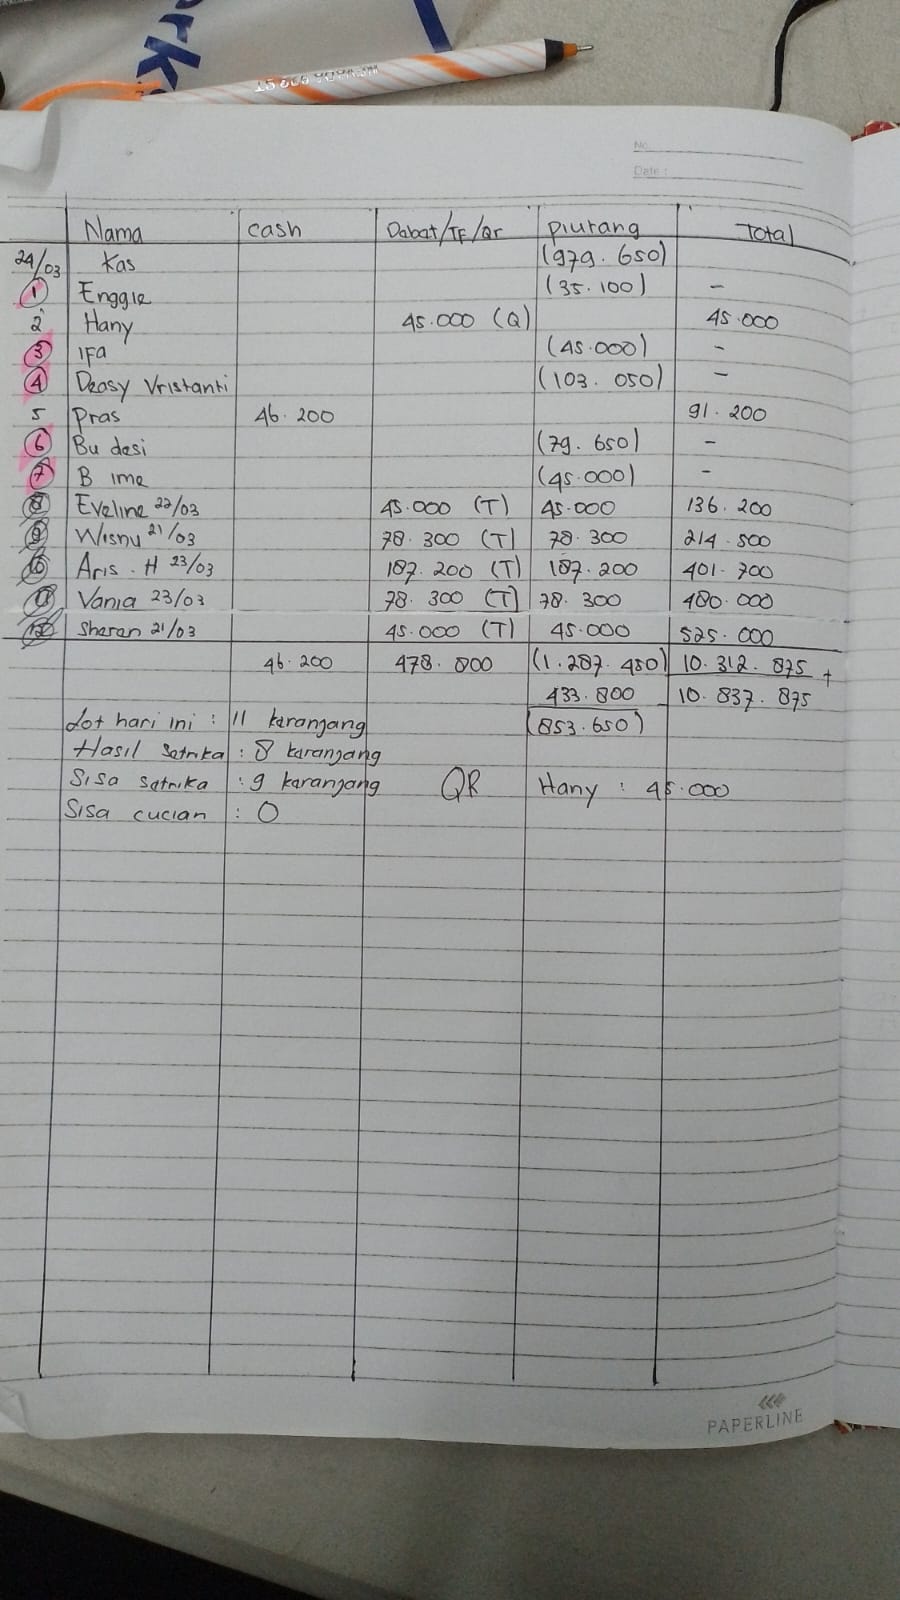 No.
Date :
Nama cash Debet/TF/Qr piutang Total
24/03 Kas (979.650)
1 Enggie (35.100) -
2 Hany 45.000 (Q) 45.000
3 IFa (45.000) -
4 Deasy Vristanti (103.050) -
5 Pras 46.200 91.200
6 Bu desi (79.650) -
7 B ime (45.000) -
8 Eveline 22/03 45.000 (T) 45.000 136.200
9 Wisnu 21/03 78.300 (T) 78.300 214.500
10 Aris.H 23/03 187.200 (T) 187.200 401.700
11 Vania 23/03 78.300 (T) 78.300 480.000
12 Sharen 21/03 45.000 (T) 45.000 525.000
46.200 478.800 (1.287.450) 10.312.875 +
433.800 10.837.875
Lot hari ini : 11 keranjang (853.650)
Hasil Setrika : 8 keranjang
Sisa setrika : 9 keranjang QR Hany : 45.000
Sisa cucian : 0
PAPERLINE